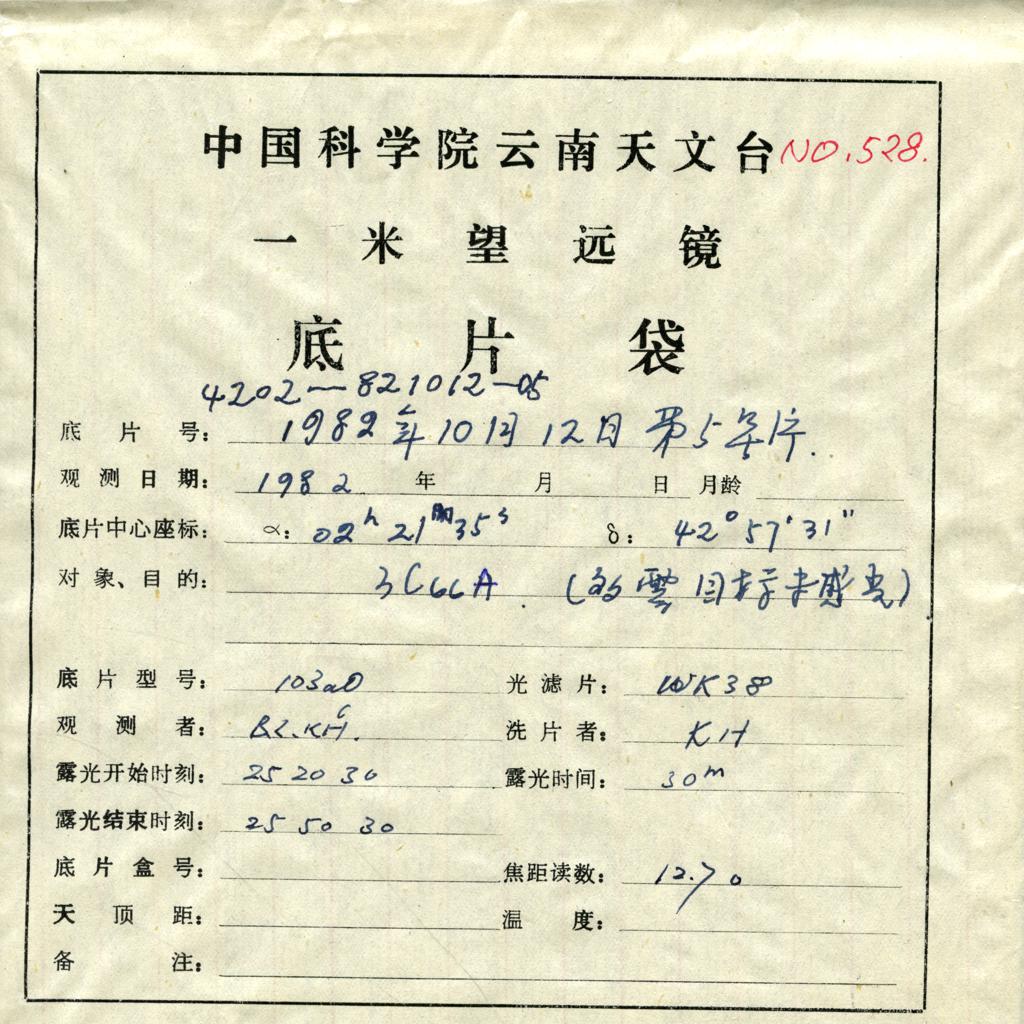 中国科学院云南天文台 NO.528.
一米望远镜
底片袋
4202-821012-05
底片号: 1982年10月12日 第5号片.
观测日期: 1982 年 月 日 月龄
底片中心座标: α: 02h 21m 35s δ: 42° 57' 31"
对象、目的: 3C66A. (云 目标未感光)
底片型号: 103aO 光滤片: 38
观测者: KH. 洗片者: KH
露光开始时刻: 25 20 30 露光时间: 30m
露光结束时刻: 25 50 30
底片盒号: 焦距读数: 12.70
天顶距: 温度:
备注: